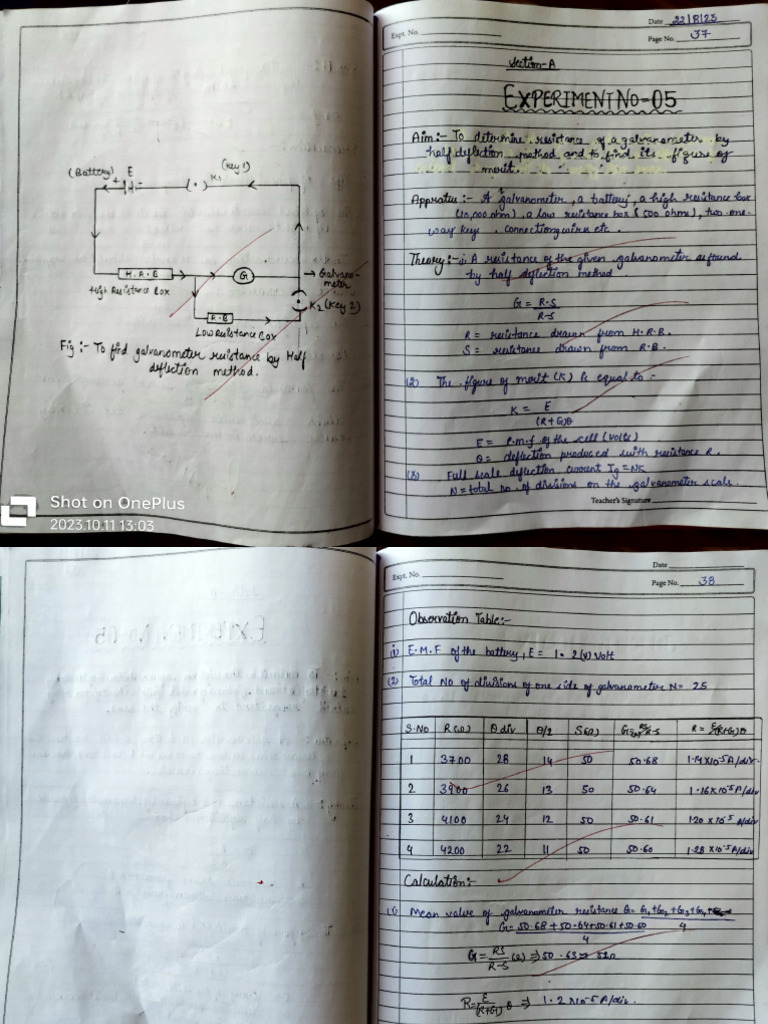 (Battery) E
+ -
(Key 1)
K1
H.R.B
High Resistance Box
G
Galvanometer
K2 (Key 2)
R.B
Low Resistance Box
Fig :- To find galvanometer resistance by Half
deflection method.
Shot on OnePlus
2023.10.11 13:03
Date 22/8/23
Expt. No.
Page No. 37
Section-A
EXPERIMENT NO-05
Aim:- To determine resistance of a galvanometer by
half deflection method and to find its figure of
merit.
Appratus :- A galvanometer, a battery, a high resistance box
(10,000 ohm), a low resistance box (500 ohms), two one-
way keys, connecting wires etc.
Theory:- i. A resistance of the given galvanometer as found
by half deflection method
G = R.S
R-S
R = resistance drawn from H.R.B.
S = resistance drawn from R.B.
(2) The figure of merit (K) is equal to :-
K = E
(R+G)θ
E = e.m.f of the cell (volts)
θ = deflection produced with resistance R.
(3) Full scale deflection current Ig = NK
N = total no. of divisions on the galvanometer scale.
Teacher's Signature
Date
Expt. No.
Page No. 38
Observation Table:-
(1) E.M.F of the battery, E = 1.2(v) Volt
(2) Total No of divisions of one side of galvanometer N = 25
S.No R(Ω) θ div θ/2 S(Ω) G = RS/R-S R = E/(R+G)θ
1 3700 28 14 50 50.68 1.14×10⁻⁵A/div
2 3900 26 13 50 50.64 1.16×10⁻⁵A/div
3 4100 24 12 50 50.61 1.20×10⁻⁵A/div
4 4200 22 11 50 50.60 1.28×10⁻⁵A/div
Calculation:-
(1) Mean value of galvanometer resistance G = G1+G2+G3+G4
4
G = 50.68+50.64+50.61+50.60
4
G = RS/R-S (Ω) ⇒ 50.63
R = E/(R+G) θ ⇒ 1.2×10⁻⁵A/div.